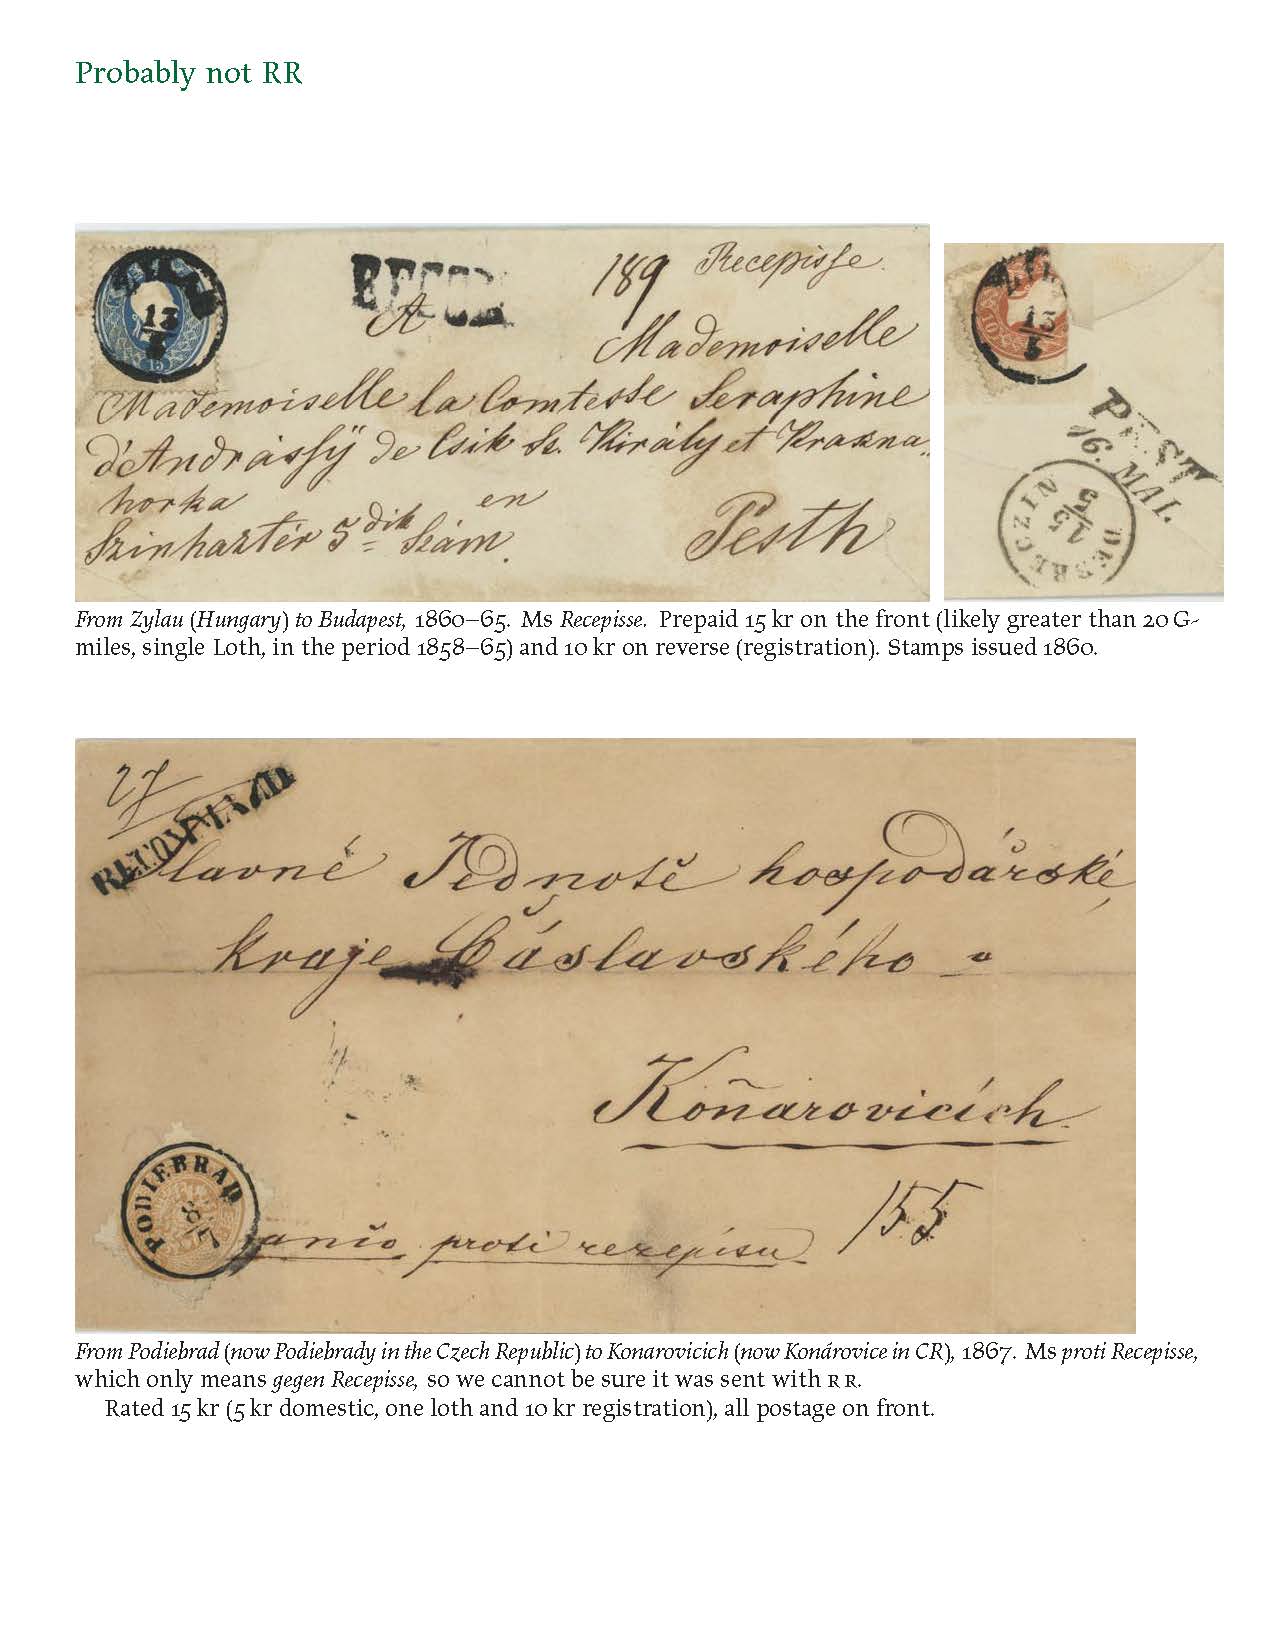 Probably not RR
RECOM
189 Recepisse
A
Mademoiselle
Mademoiselle la Comtesse Seraphine
d'Andrássÿ de Csik Sz. Király et Kraszna
horka en
Szinháztér 5dik Szám. Pesth
15
13/5
10
13/5
PEST
16. MAI.
DEBRECZIN
15/5
From Zylau (Hungary) to Budapest, 1860–65. Ms Recepisse. Prepaid 15 kr on the front (likely greater than 20 G-
miles, single Loth, in the period 1858–65) and 10 kr on reverse (registration). Stamps issued 1860.
27
RECOMMAND
Slavné Jednotě hospodářské
kraje Čáslavského
Koňarovicích
PODIEBRAD
8/7
proti rezepisu 155
From Podiebrad (now Podiebrady in the Czech Republic) to Konarovicich (now Konárovice in CR), 1867. Ms proti Recepisse,
which only means gegen Recepisse, so we cannot be sure it was sent with RR.
Rated 15 kr (5 kr domestic, one loth and 10 kr registration), all postage on front.